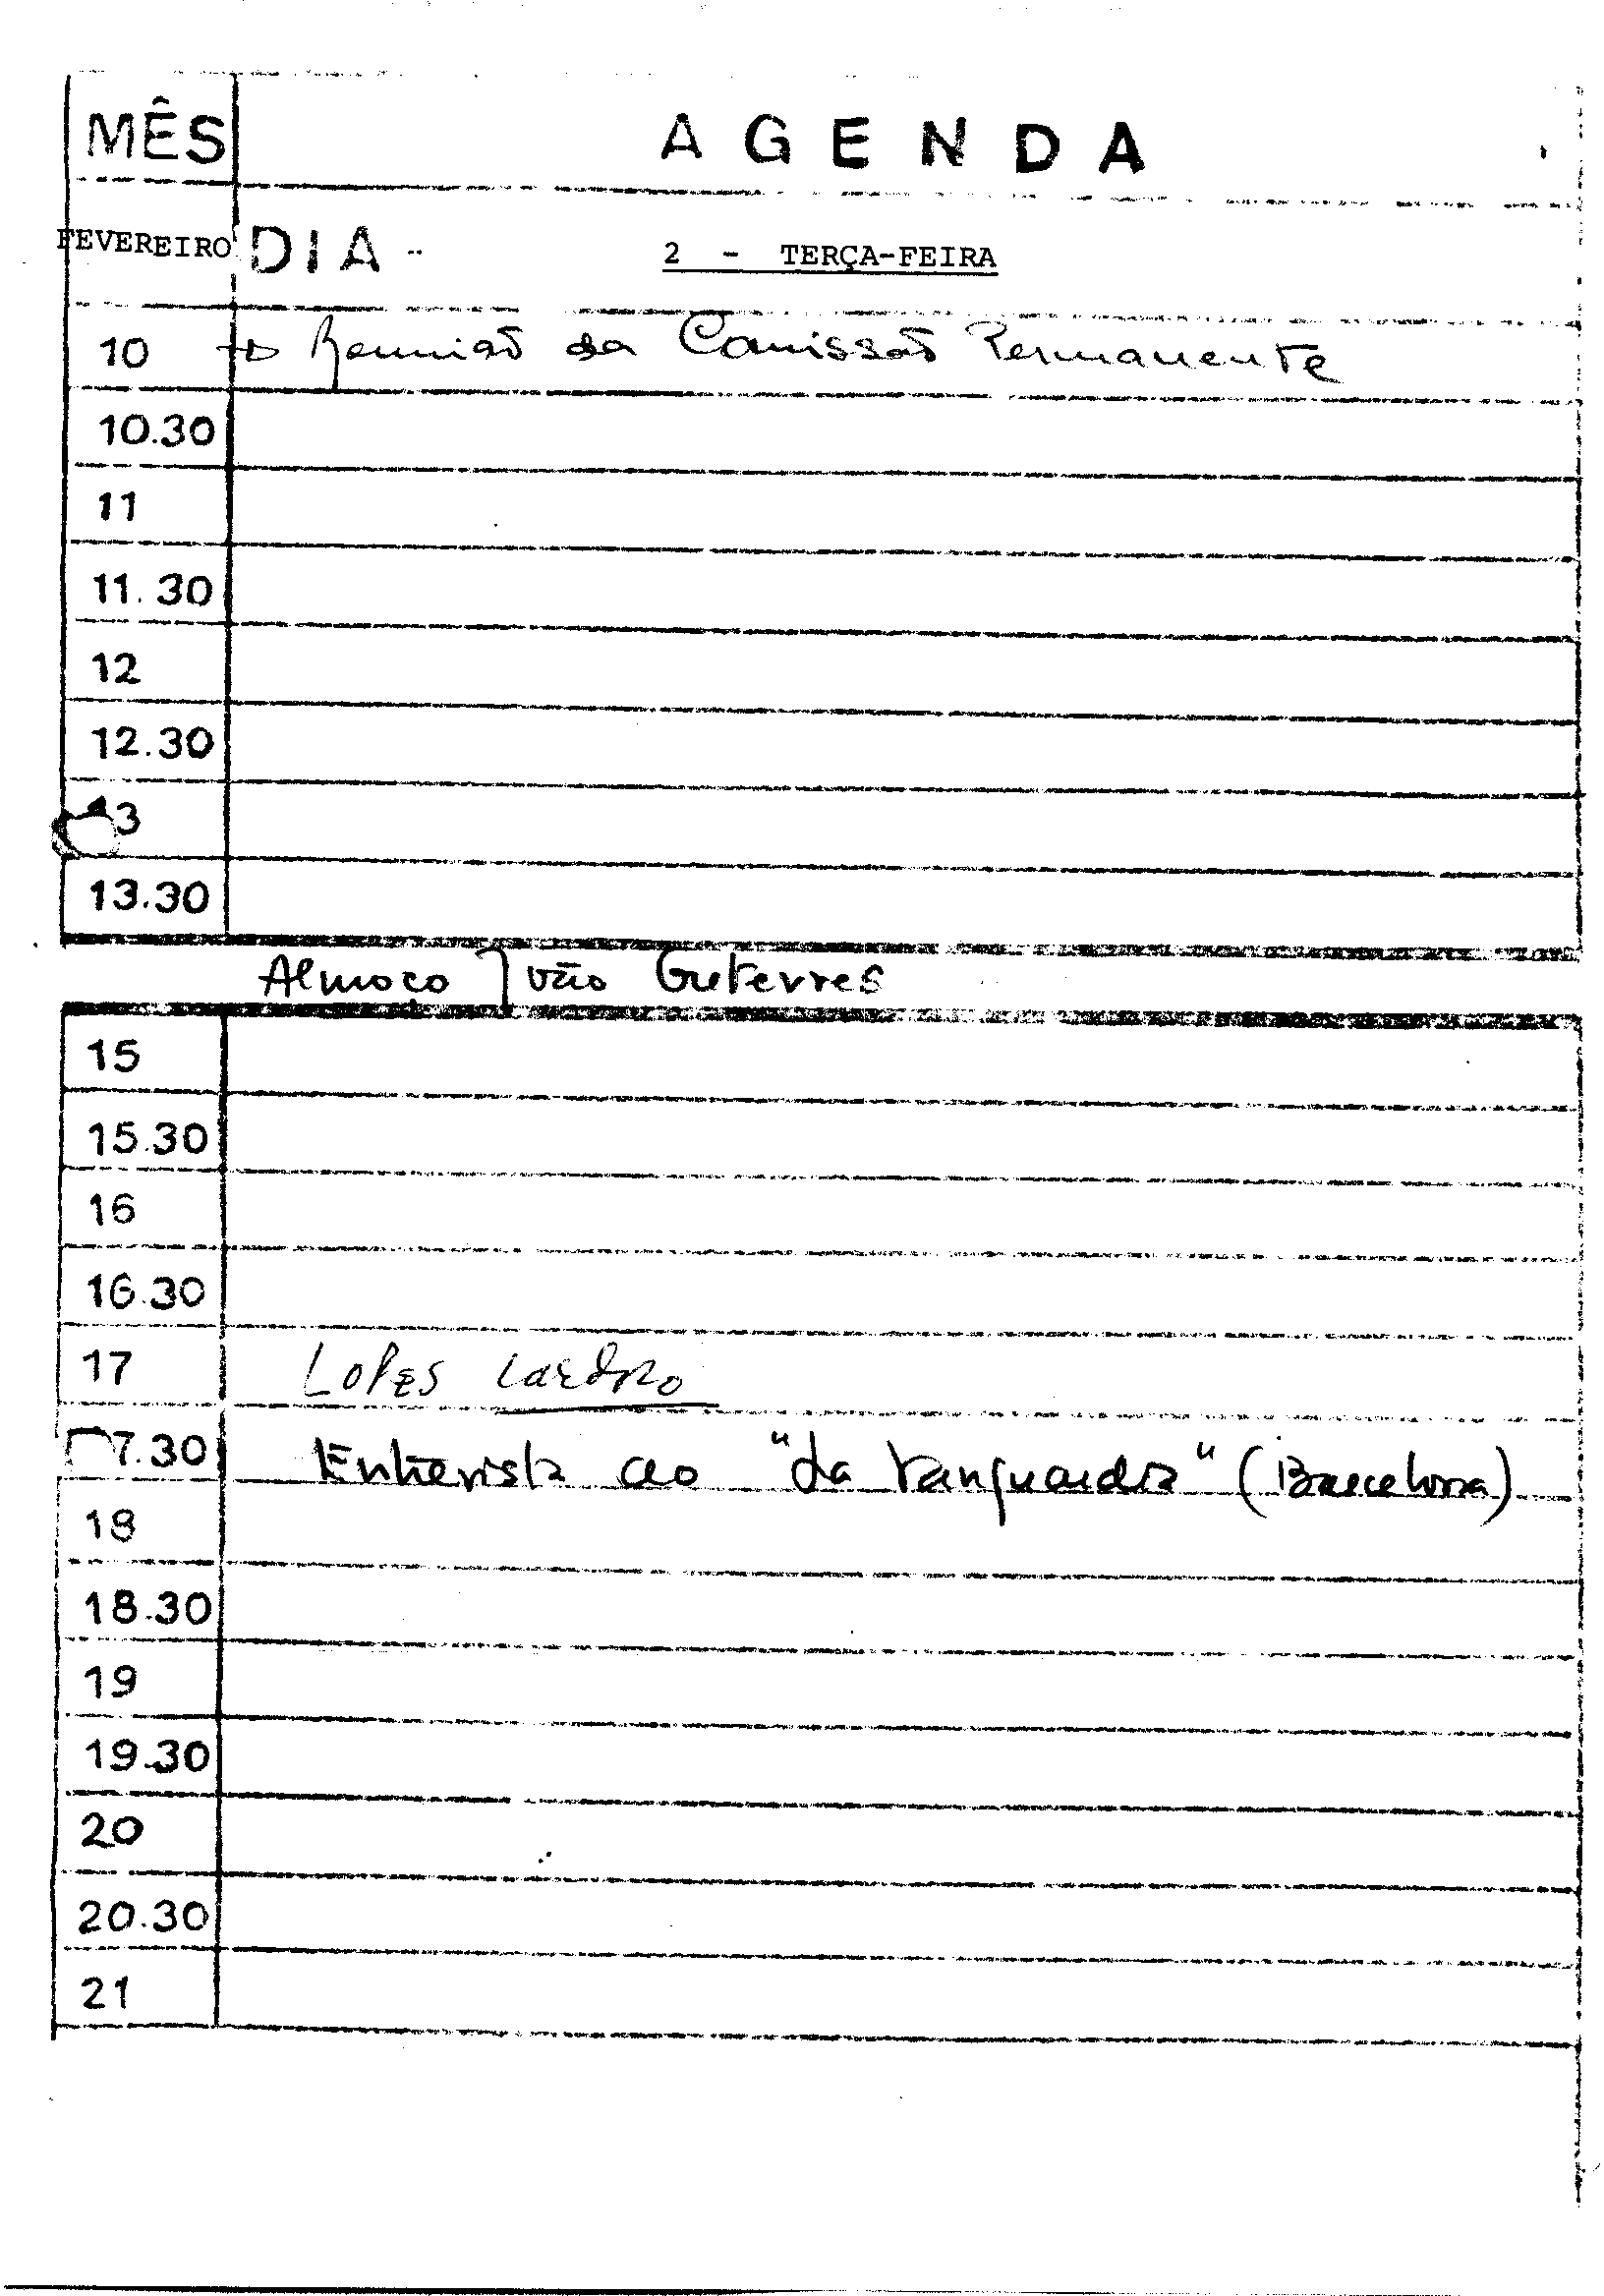 MÊS AGENDA
FEVEREIRO DIA - 2 - TERÇA-FEIRA
10 Reunião da Comissão Permanente
10.30
11
11.30
12
12.30
13
13.30
Almoço João Guterres
15
15.30
16
16.30
17 Lopes Cardoso
17.30 Entrevista ao "La Vanguardia" (Barcelona)
18
18.30
19
19.30
20
20.30
21